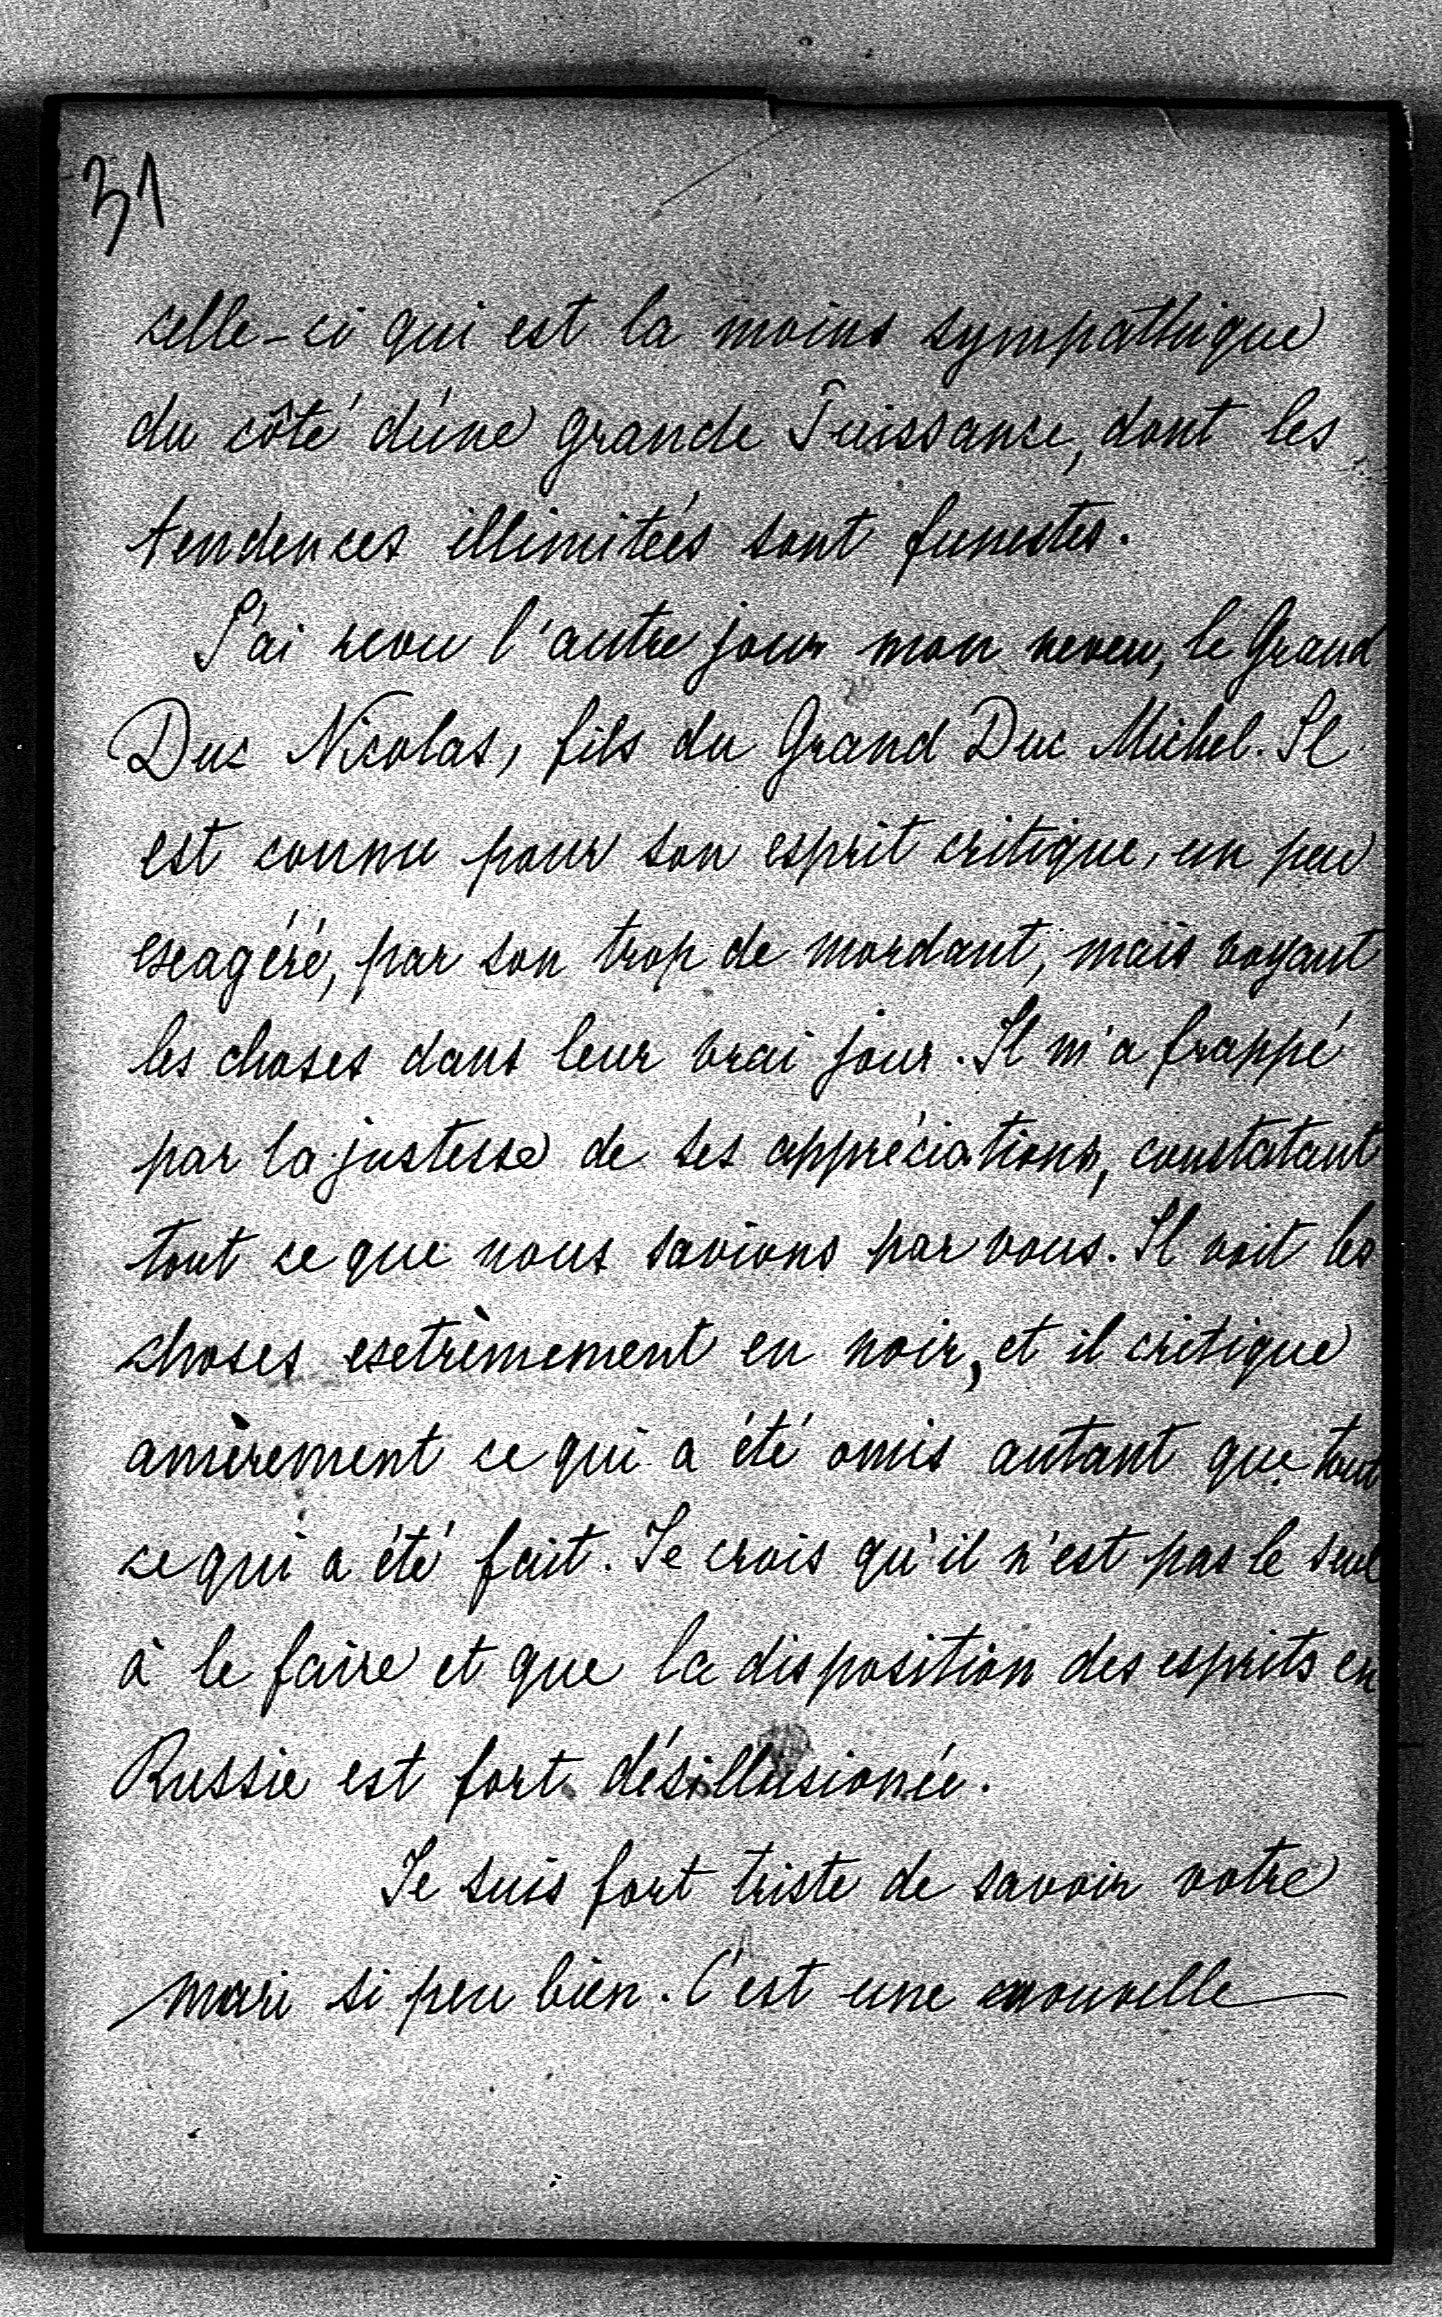 31
celle-ci qui est la moins sympathique
du côté d'une grande Puissance, dont les
tendences illimitées sont funestes.
J'ai revu l'autre jour mon neveu, le Grand
Duc Nicolas, fils du Grand Duc Michel. Il
est connu pour son esprit critique, un peu
exagéré, par son trop de mordant, mais voyant
les choses dans leur vrai jour. Il m'a frappé
par la justesse de ses appréciations, constatant
tout ce que nous savions par vous. Il voit les
choses extrèmement en noir, et il critique
amèrement ce qui a été omis autant que tout
ce qui a été fait. Je crois qu'il n'est pas le seul
à le faire et que la disposition des esprits en
Russie est fort désillusionée.
Je suis fort triste de savoir votre
mari si peu bien. C'est une nouvelle